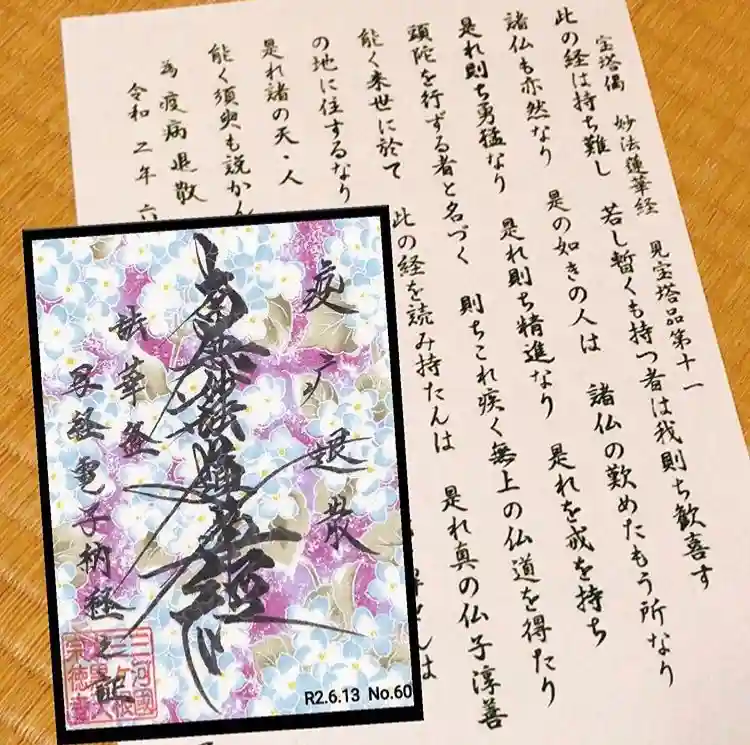 宝塔偈　妙法蓮華経　見宝塔品第十一
此の経は持ち難し　若し暫くも持つ者は我則ち歓喜す
諸仏も亦然なり　是の如きの人は　諸仏の歎めたもう所なり
是れ則ち勇猛なり　是れ則ち精進なり　是れを戒を持ち
頭陀を行ずる者と名づく　則ちこれ疾く無上の仏道を得たり
能く来世に於て　此の経を読み持たんは　是れ真の仏子淳善
の地に住するなり
是れ諸の天・人
能く須臾も説かん
為疫病退散
令和二年六
疫 退散
南無妙法蓮華経
写経電子納経之証
三河國
R2.6.13 No.60